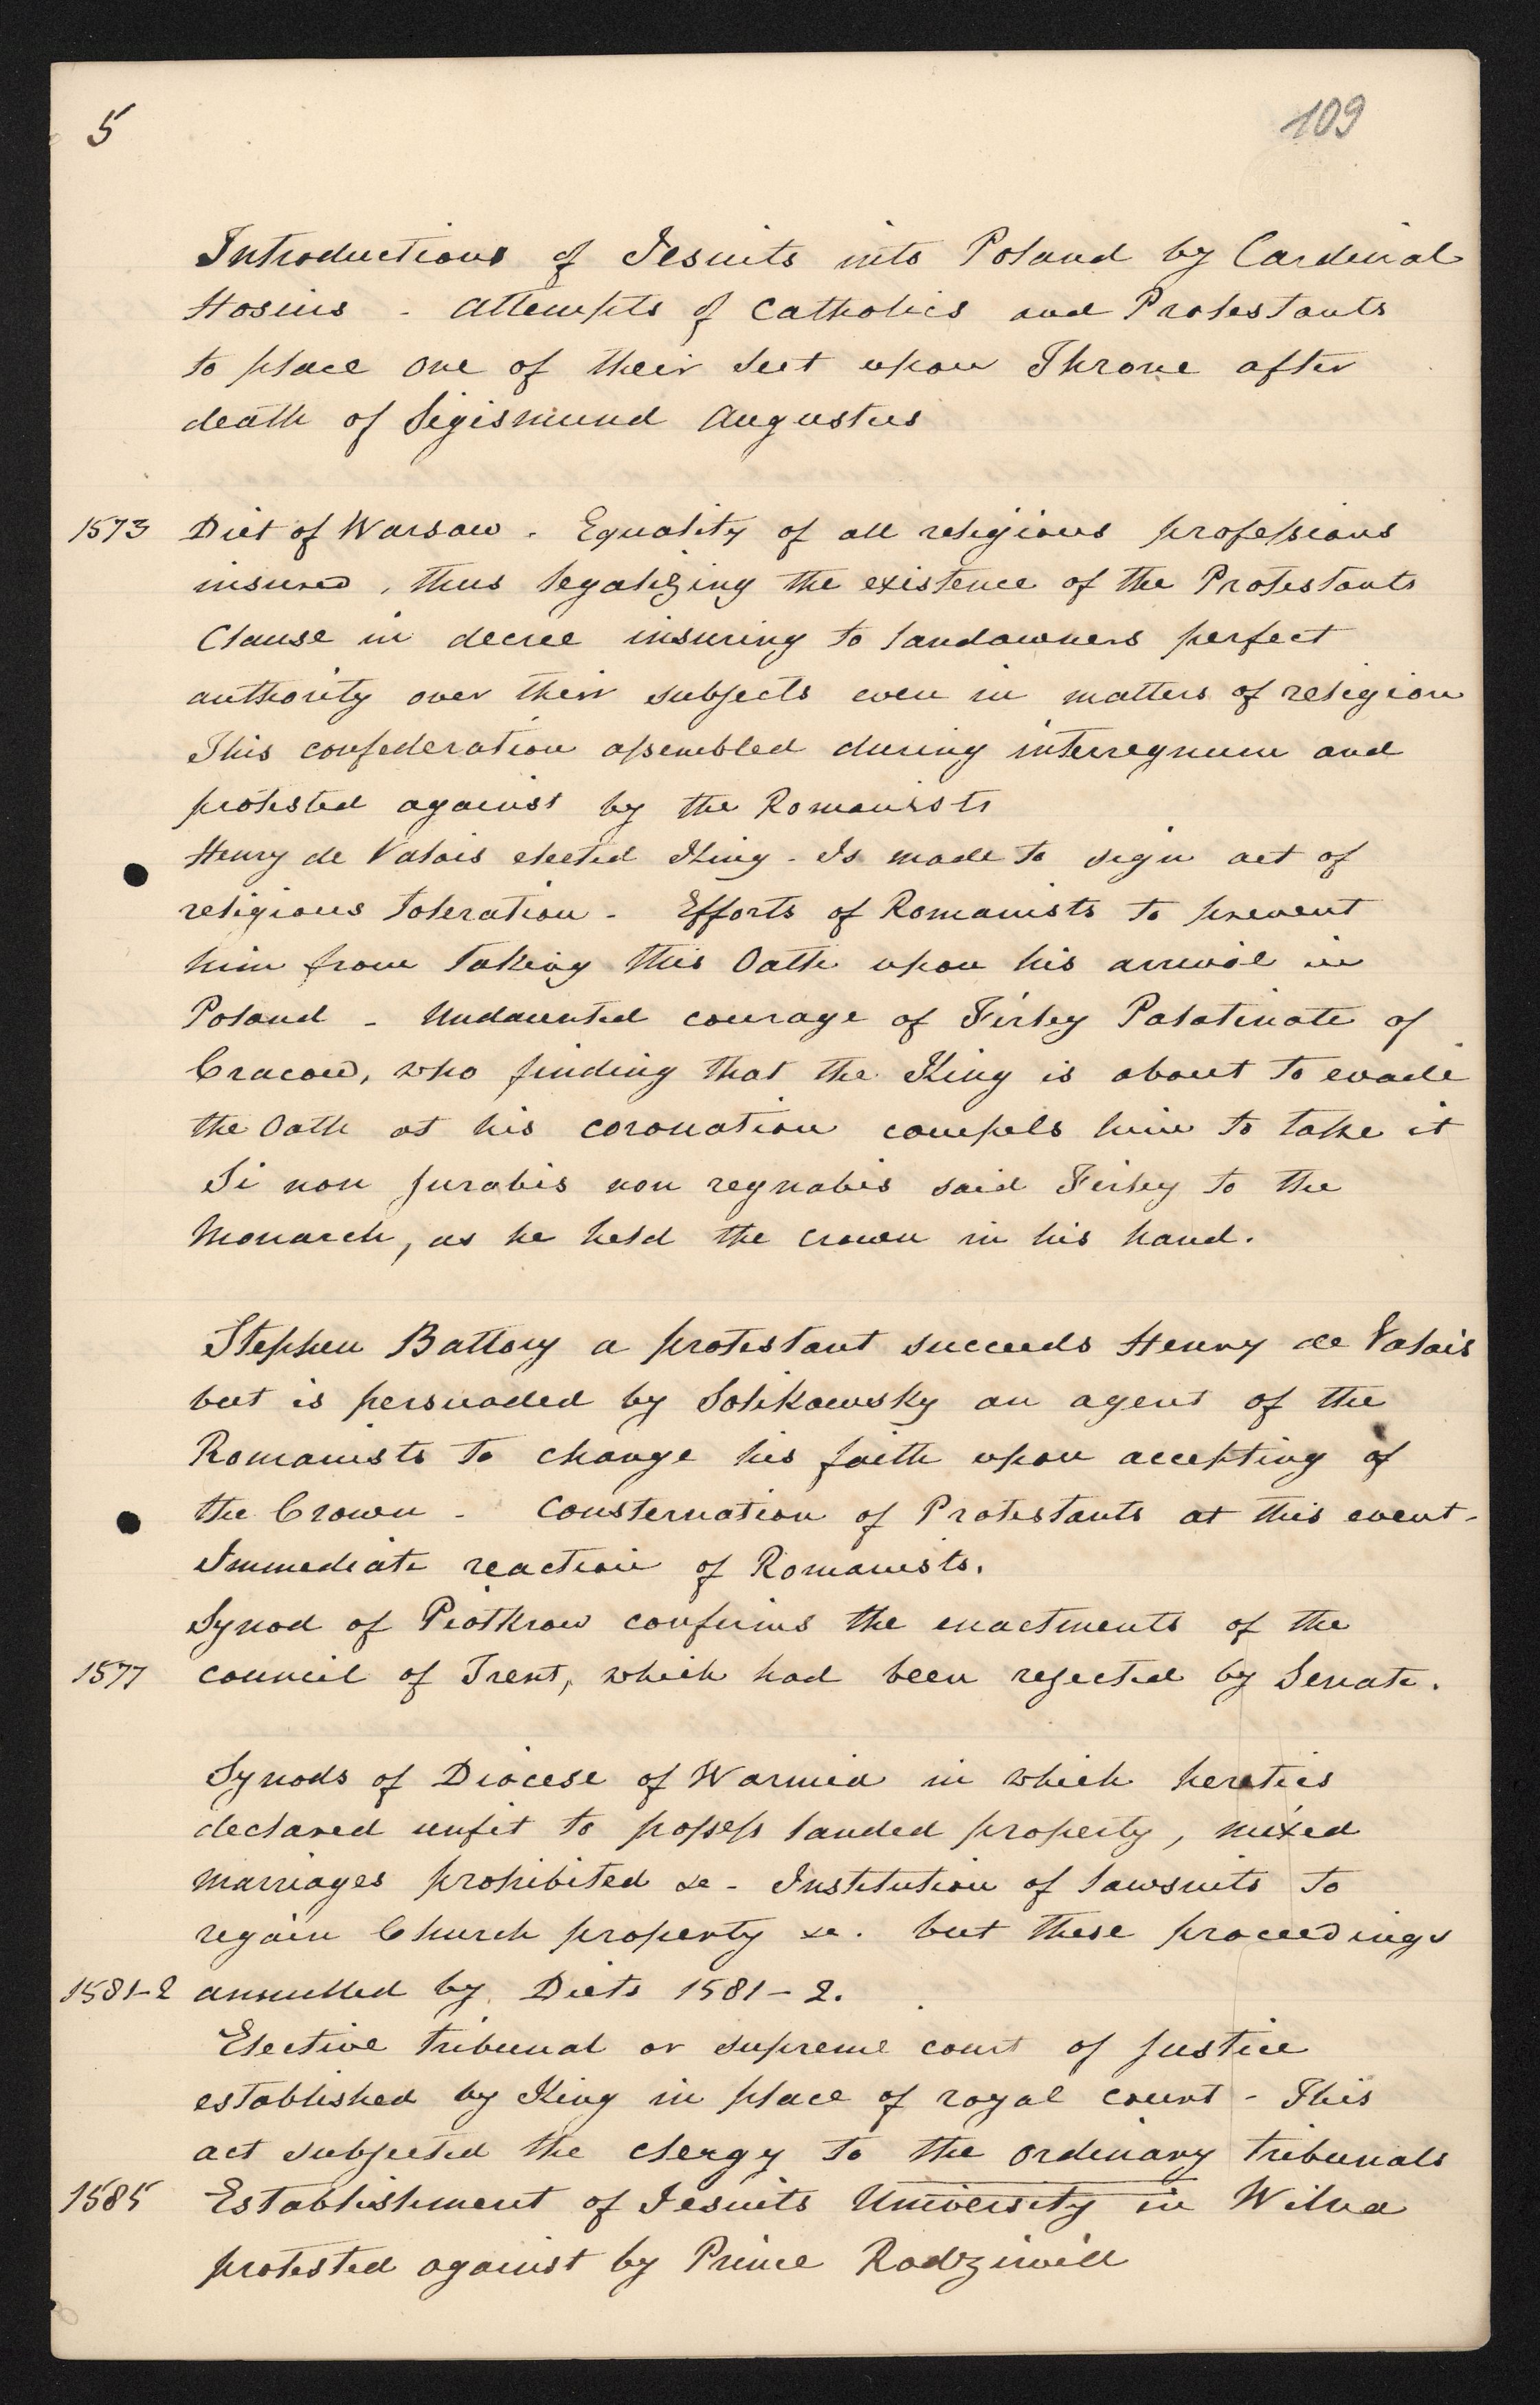 5
109
Introductions of Jesuits into Poland by Cardinal
Hosius - Attempts of Catholics and Protestants
to place one of their sect upon Throne after
death of Sigismund Augustus
1573 Diet of Warsaw. Equality of all religious professions
insured, thus legalizing the existence of the Protestants
Clause in decree insuring to landowners perfect
authority over their subjects even in matters of religion
This confederation assembled during interregnum and
protested against by the Romanists
Henry de Valois elected King - Is made to sign act of
religious toleration - Efforts of Romanists to prevent
him from taking this Oath upon his arrival in
Poland - Undaunted courage of Firley Palatinate of
Cracow, who finding that the King is about to evade
the Oath at his coronation compels him to take it
Si non jurabis non regnabis said Firley to the
Monarch, as he held the crown in his hand.
Stephen Battory a protestant succeeds Henry de Valois
but is persuaded by Solikowsky an agent of the
Romanists to change his faith upon accepting of
the Crown - Consternation of Protestants at this event -
Immediate reaction of Romanists.
Synod of Piotkrow confirms the enactments of the
1577 council of Trent, which had been rejected by Senate.
Synods of Diocese of Warmia in which heretics
declared unfit to possess landed property, mixed
marriages prohibited &c - Institution of lawsuits to
regain Church property &c. but these proceedings
1581-2 annulled by Diets 1581-2.
Elective tribunal or supreme court of justice
established by King in place of royal court - This
act subjected the clergy to the ordinary tribunals
1585 Establishment of Jesuits University in Wilna
protested against by Prince Radziwill